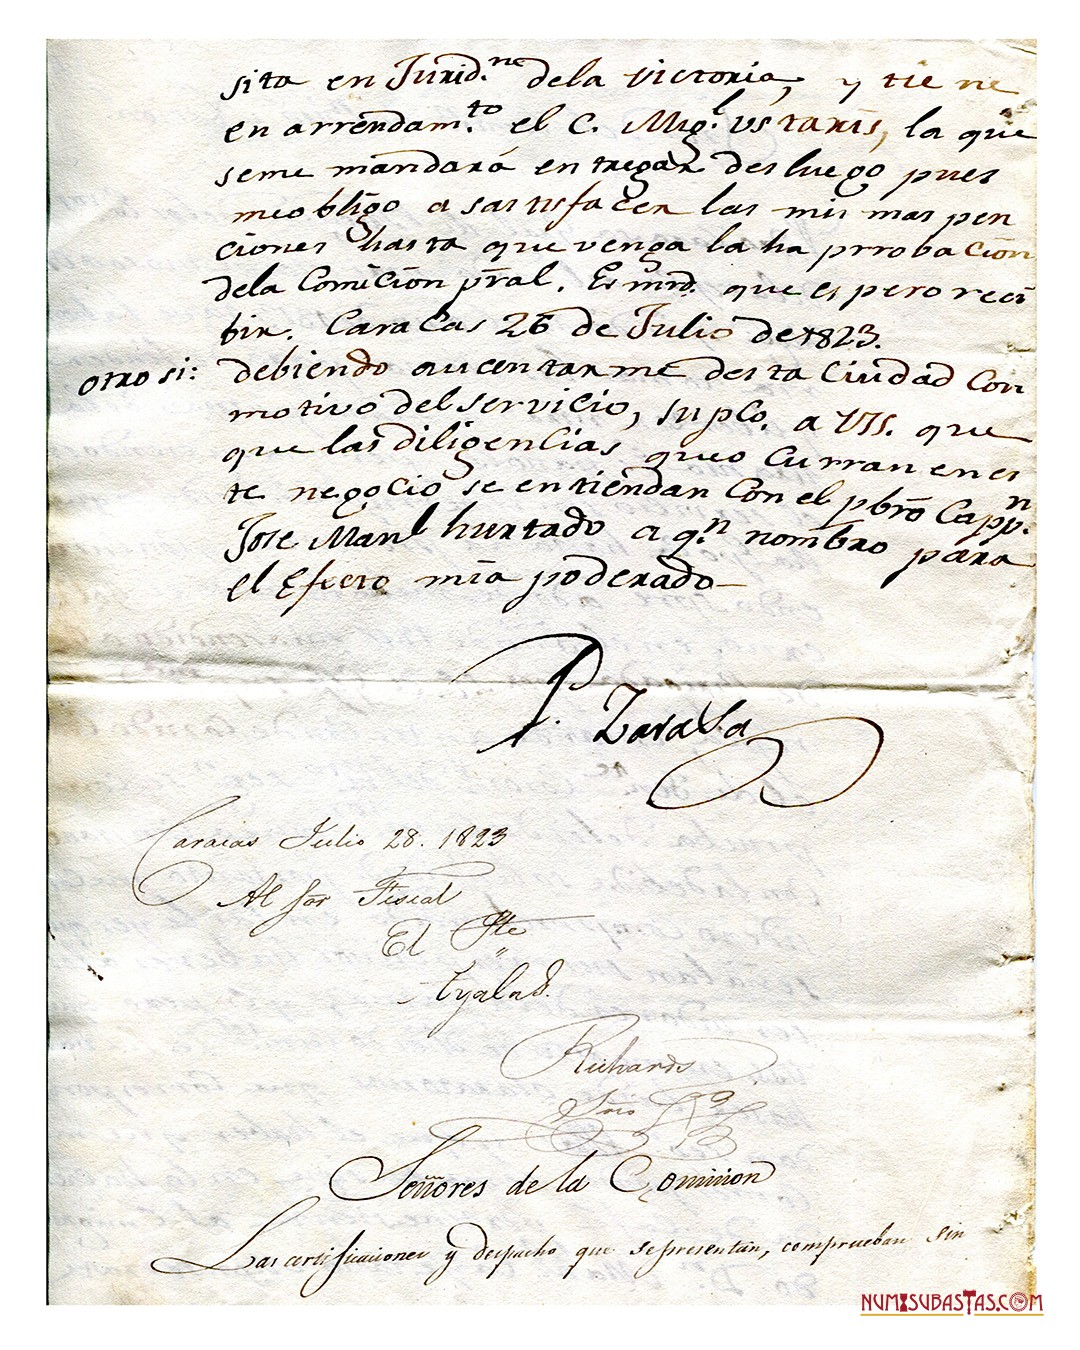 sita en Jurid.ne dela victoria, y tiene
en arrendam.to el C. Mig.l Ustaris, la que
seme mandará entregar desluego pues
meobligo a sastisfacer las mismas pen
ciones hasta que venga la haprrobación
dela Comición pral. Es mrd. que espero reci
bir. Caracas 26 de Julio de 1823.
otro si: debiendo aucentarme desta Ciudad Con
motivo del servicio, suplco. a VSS. que
que las diligencias queo curran en es
te negocio se entiendan Con el pbro Capp.n
Jose Manl hurtado a q.n nombro para
el Efecto mia poderado
P. Zarasa
Caracas Julio 28. 1823
Al Sor Fiscal
El Pte
Ayala
Richards
Srio
Señores de la Comision
Las certificaciones y despacho que se presentan, comprueban sin
NUMISUBASTAS.COM